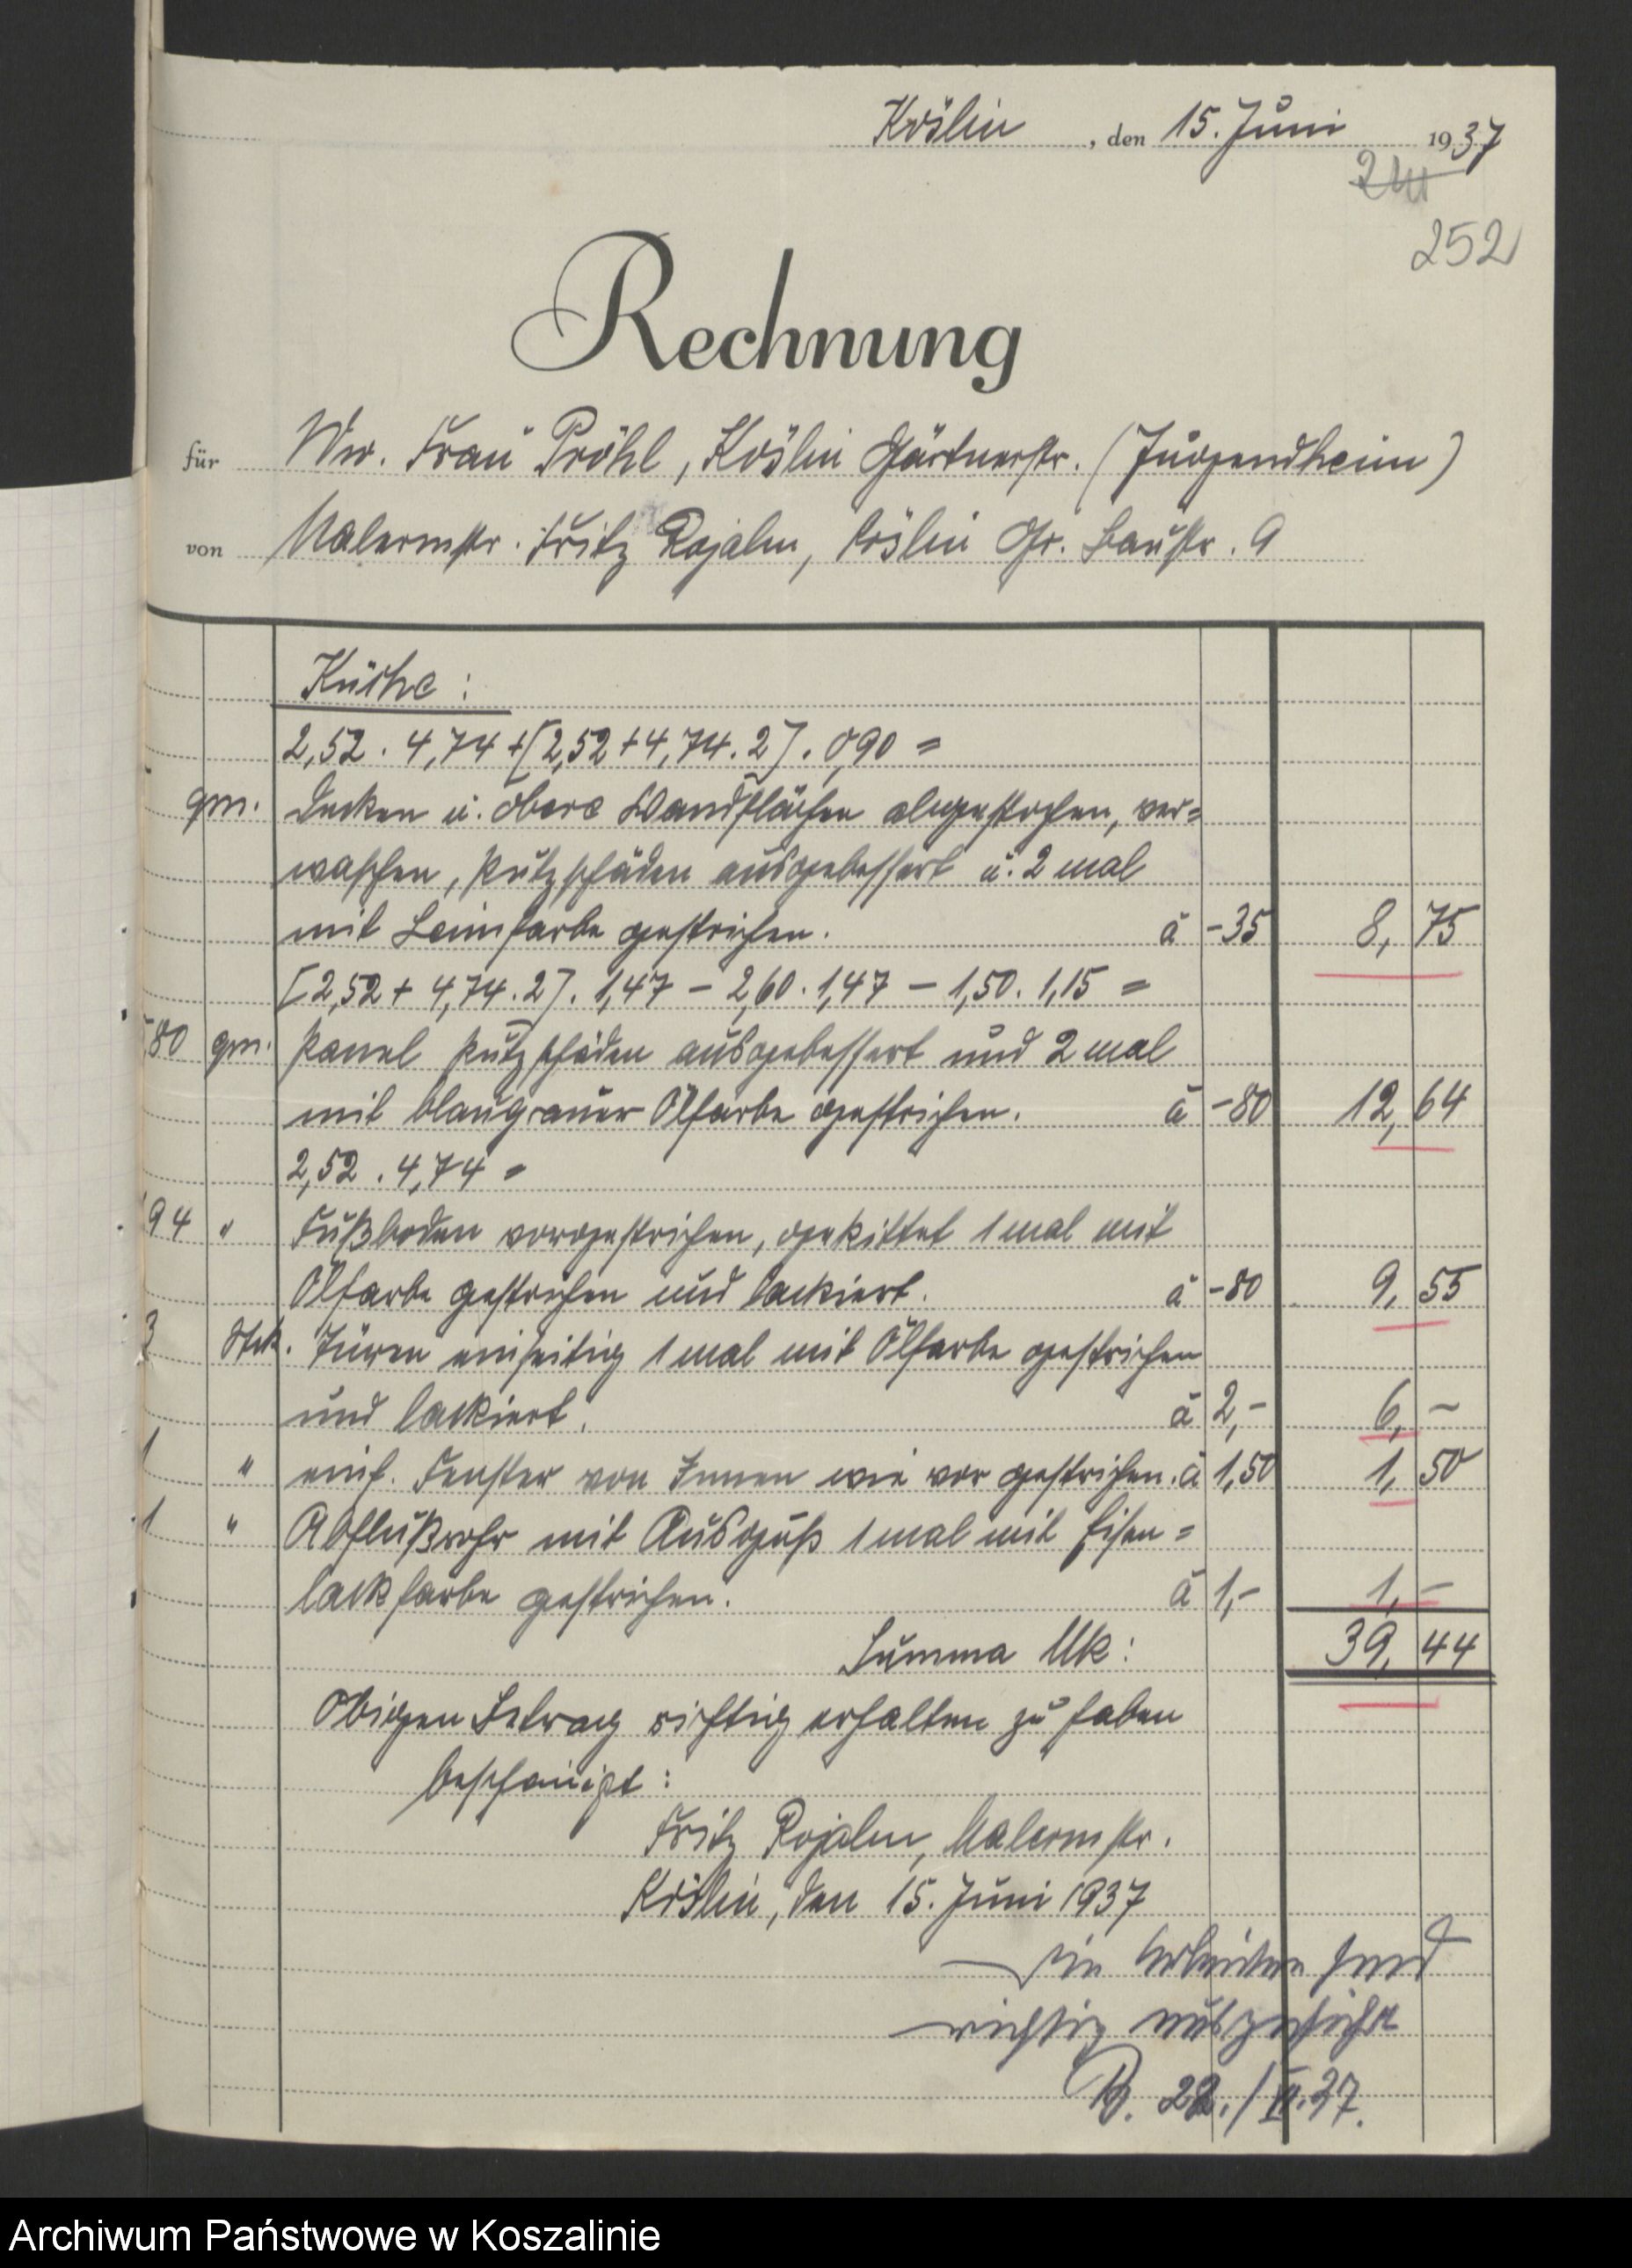 Köslin, den 15. Juni 1937
252
Rechnung
für Ww. Frau Pröhl, Köslin Gärtnerstr. (Jugendheim)
von Malermstr. Fritz Rojahn, Köslin Gr. Baustr. 9
Küche:
2,52 . 4,74 + [2,52 + 4,74 . 2] . 0,90 =
qm. Decken u. obere Wandflächen abgestoßen, ver=
waschen, Putzschäden ausgebessert u. 2 mal
mit Leimfarbe gestrichen. à -35 8,75
[2,52 + 4,74 . 2] . 1,47 - 2,60 . 1,47 - 1,50 . 1,15 =
80 qm. Panel Putzschäden ausgebessert und 2 mal
mit blaugrauer Ölfarbe gestrichen. à -80 12,64
2,52 . 4,74 =
94 " Fußboden vorgestrichen, gekittet 1 mal mit
Ölfarbe gestrichen und lackiert. à -80 9,55
3 Stck. Türen einseitig 1 mal mit Ölfarbe gestrichen
und lackiert. à 2,- 6,-
1 " einf. Fenster von Innen wie vor gestrichen. à 1,50 1,50
1 " Abflußrohr mit Ausguß 1 mal mit Eisen=
lackfarbe gestrichen. à 1,- 1,-
Summa Mk: 39,44
Obigen Betrag richtig erhalten zu haben
bescheinigt:
Fritz Rojahn, Malermstr.
Köslin, den 15. Juni 1937
Die Arbeiten sind
richtig ausgeführt
22./II.37.
Archiwum Państwowe w Koszalinie